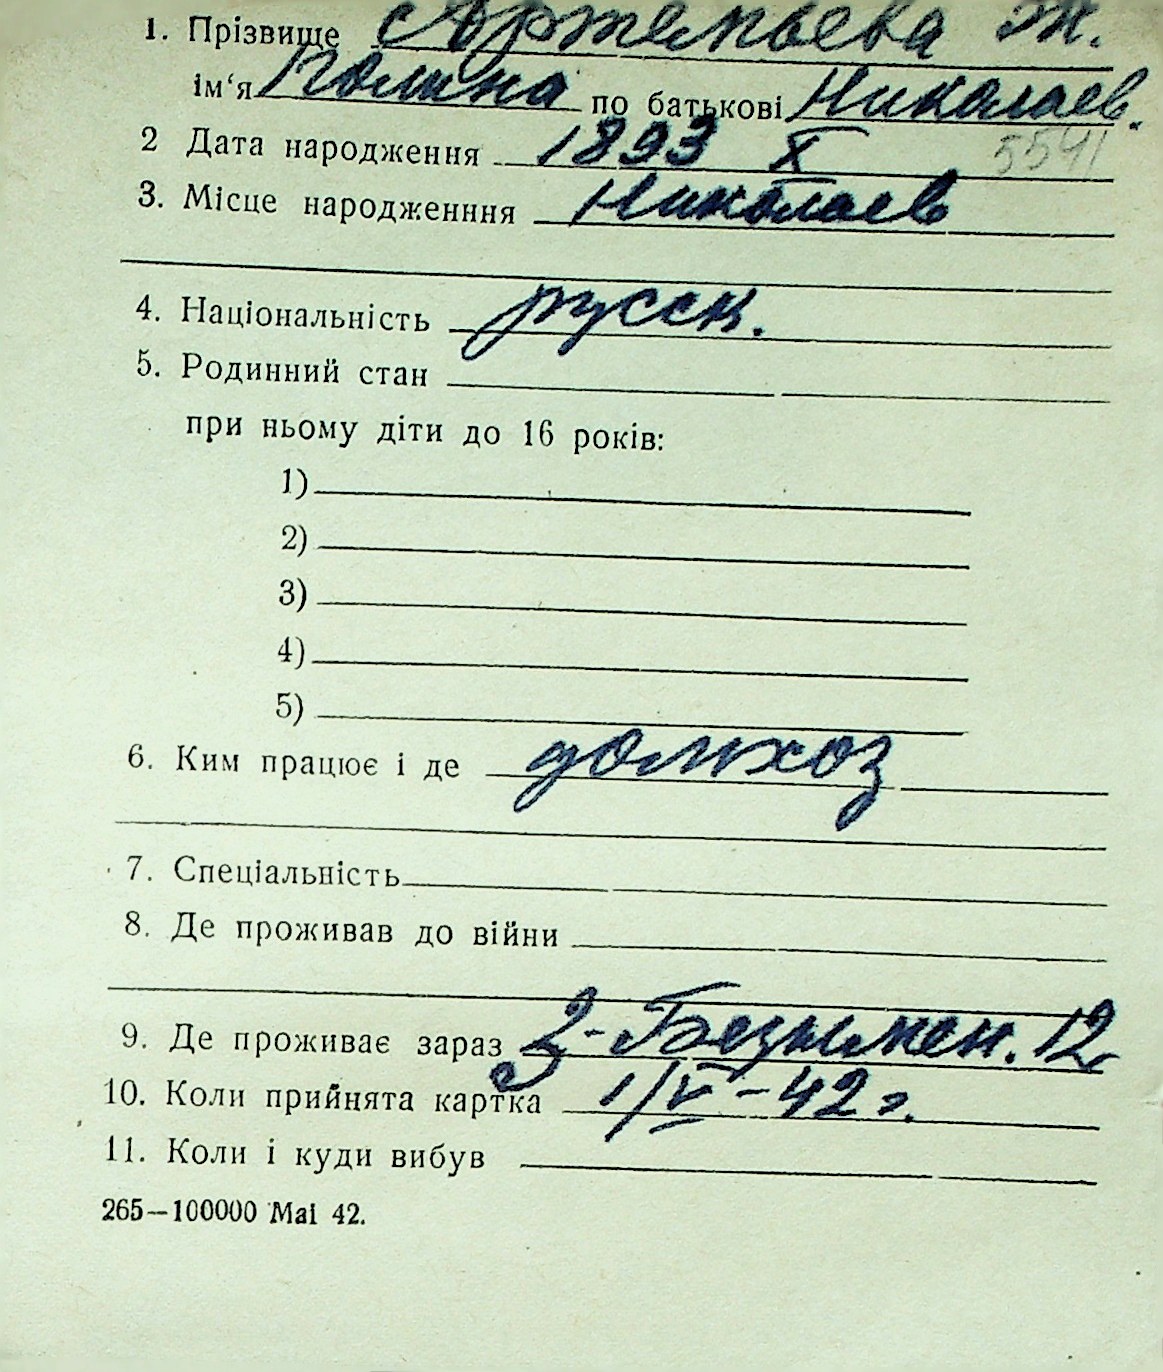 1. Прізвище Артемьева Ж.
ім‘я Полина по батькові Николаев.
2 Дата народження 1893 X 5591
3. Місце народженння Николаев
4. Національність русск.
5. Родинний стан
при ньому діти до 16 років:
1)
2)
3)
4)
5)
6. Ким працює і де домхоз
7. Спеціальність
8. Де проживав до війни
9. Де проживає зараз 2-Безымен. 12
10. Коли прийнята картка 1/V-42 г.
11. Коли і куди вибув
265—100000 Mai 42.